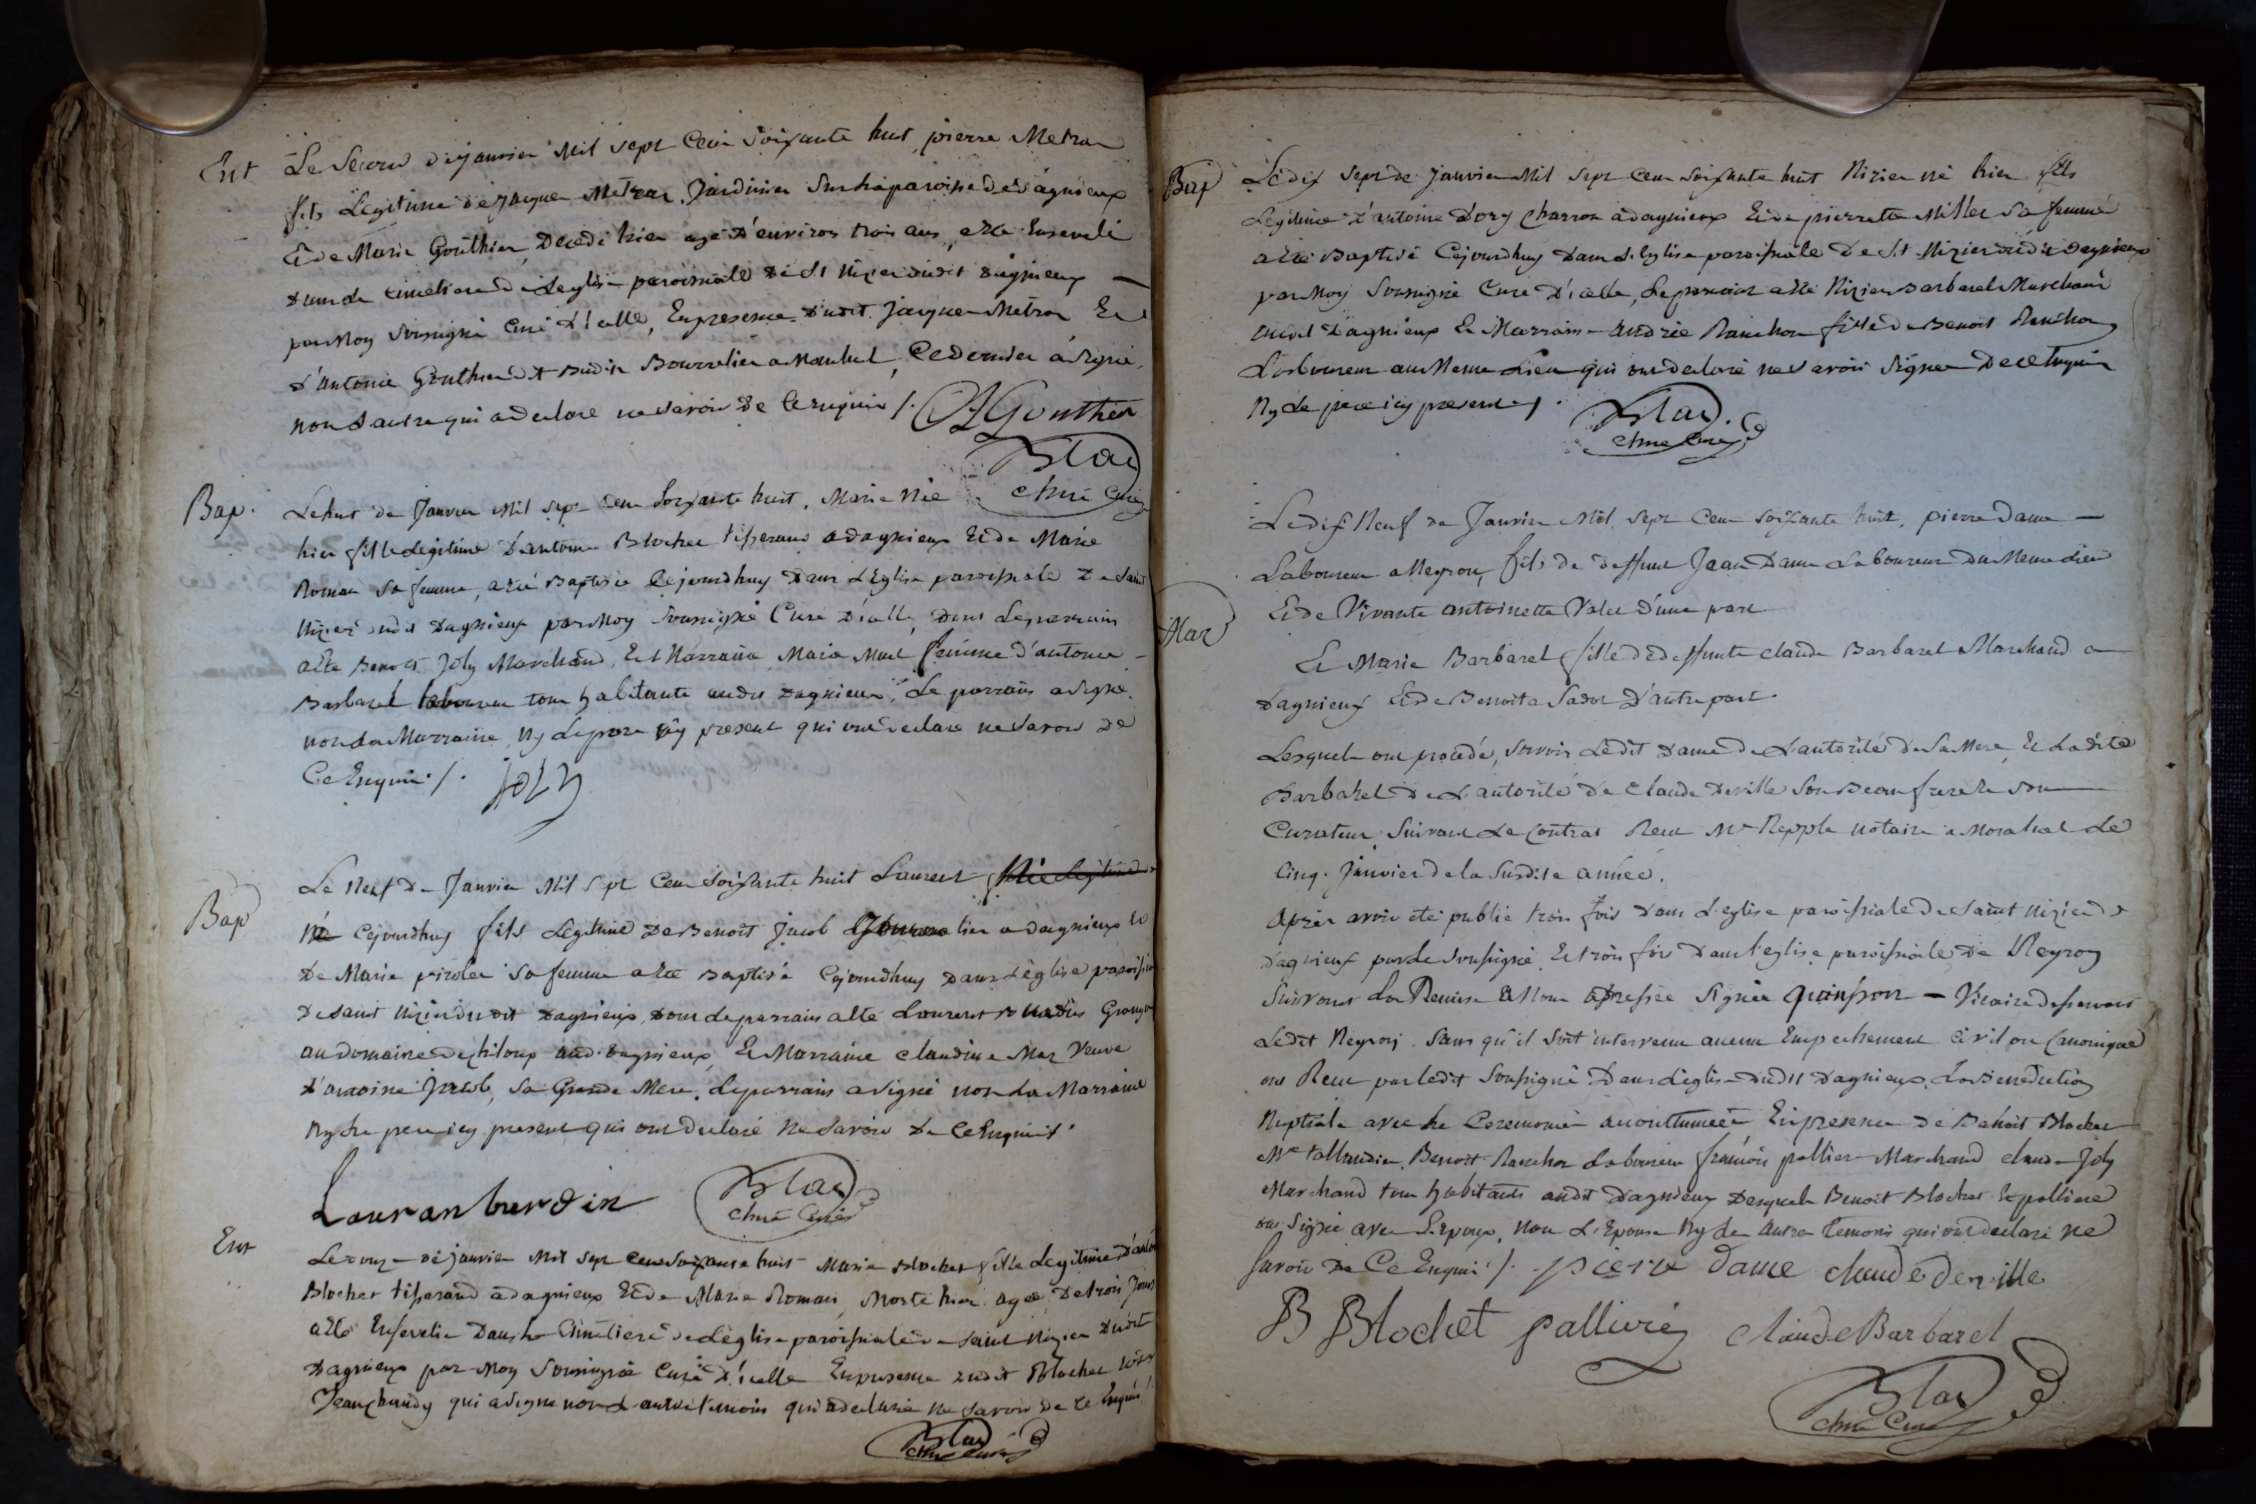 Ent
Le second de janvier Mil sept Cent soixante huit pierre Metra
fils Légitime de jacque Metra Jardinier sur la paroisse de dagnieux
Et de Marie Gonthier, Decedé hier agé d'environ trois ans, a été Enseveli
Dans le cimetiere de L'eglise paroissiale de St Nizier dudit dagnieux
par Moy soussigné Curé d'icelle, En presence dudit Jacque Metra Et
d'antoine Gonthier dit Bourrelier a Monluel, Ce dernier a signé,
non L'autre qui a declaré ne savoir de Ce requis /. Gonthier
Blad
curé
Bap.
Le huit de Janvier Mil sept Cent soixante huit, Marie née
hier fille Legitime d'antoine Blochet tisserand a dagnieux Et de Marie
Roman sa femme, a été Baptisée Cejourdhuy Dans L'Eglise paroissiale De saint
Nizier dudit Dagnieux par Moy soussigné Curé d'icelle, dont Le parrain
a été Benoit Joly Marchand, Et Marraine Marie femme d'antoine
Barbarel laboureur tous habitants audit Dagnieux, Le parrain a signé,
non la Marraine, Ny Le pere icy present qui ont declaré ne savoir De
Ce Enquis /. joly
Bap
Le Neuf De Janvier Mil sept Cent soixante huit Laurent
né Cejourdhuy fils Légitime De Benoit Jacob a dagnieux Et
De Marie sa femme a été Baptisé Cejourdhuy Dans L'église
De saint Nizier dudit Dagnieux, dont Le parrain a été Laurent
au domaine de chiloup audit dagnieux, Et Marraine Claudine Mar Veuve
d'antoine Jacob, sa Grande Mere, Le parrain a signé non La Marraine
Ny Le pere icy present qui ont declaré Ne savoir De Ce Enquis /.
Lauran burdin
Blad
curé
Ent
Le onze de janvier Mil sept Cent soixante huit Marie Blochet fille Legitime
Blochet tisserand a dagnieux Et de Marie Roman, Morte hier agée De trois jours
a été Ensevelie Dans Le Cimetiere de L'église paroissiale de saint Nizier Dudit
Dagnieux par Moy soussigné Curé d'icelle En presence dudit Blochet
Jean qui a signé non L'autre temoin qui a declaré ne savoir De Ce Enquis /.
Blad
curé
Bap
Le dix sept de janvier Mil sept Cent soixante huit Nizier né hier fils
Legitime d'antoine Dory Charron a dagnieux Et de pierrette Millet sa femme
a été Baptisé Cejourdhuy Dans L'Eglise paroissiale De St Nizier dudit Dagnieux
par Moy soussigné Curé d'icelle, Le parrain a été Nizier Barbarel Marchand
audit Dagnieux Et Marraine Andrée Ranchon fille de Benoit Ranchon
Laboureur au Meme Lieu qui ont declaré ne savoir signer De ce Enquis
Ny Le pere icy present /.
Blad.
curé
Mar
Le dix Neuf de Janvier Mil sept Cent soixante huit, pierre Dame
Laboureur a Neyron, fils de deffunt Jean Dame Laboureur Du Meme Lieu
Et de Vivante antoinette Valet d'une part
Et Marie Barbarel fille de deffunt claude Barbarel Marchand a
Dagnieux Et de Benoite Sadot d'autre part.
Lesquels ont procédé, savoir Ledit Dame de L'autorité de Sa Mere, Et Ladite
Barbarel De L'autorité De Claude Deville Son Beau frere Et son
Curateur, suivant Le Contrat Reçu Me notaire a Le
Cinq Janvier de la susdite année.
Après avoir été publié trois fois Dans L'eglise paroissiale De saint Nizier de
Dagnieux par Le soussigné, Et trois fois Dans l'église paroissiale De Neyron
suivant La Remise a Nous adressée signée Quinsson Vicaire desservant
Ledit Neyron, sans qu'il soit intervenu aucun Empechement civil ou Canonique
ont Reçu par ledit soussigné Dans L'église Dudit Dagnieux, La Benediction
Nuptiale avec Les Ceremonies accoutumées En presence de Benoit Blochet
Me taillandier, Benoit Ranchon Laboureur françois pallier Marchand claude Joly
Marchand tous habitants audit Dagnieux Desquels Benoit Blochet Et palliere
ont signé avec L'epoux, non L'Epouse Ny Les autres temoins qui ont declaré Ne
savoir De Ce Enquis /. pierre Dame claude deville
B Blochet palliere claude Barbarel
Blad
curé